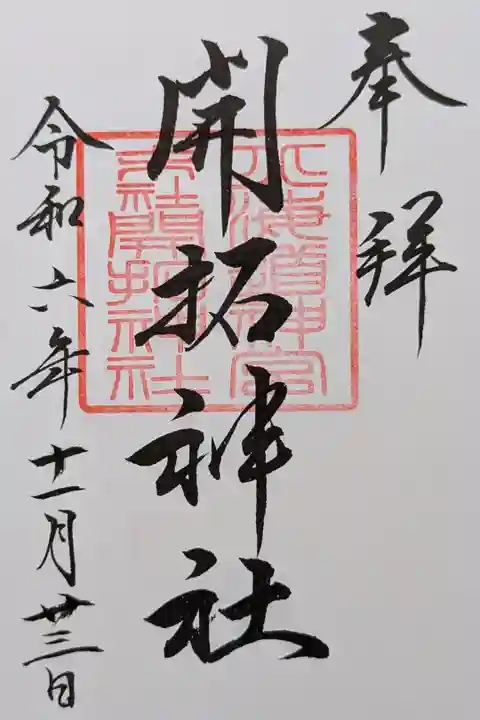 奉拝
開拓神社
北海道神宮
末社開拓神社
令和六年十一月廿三日